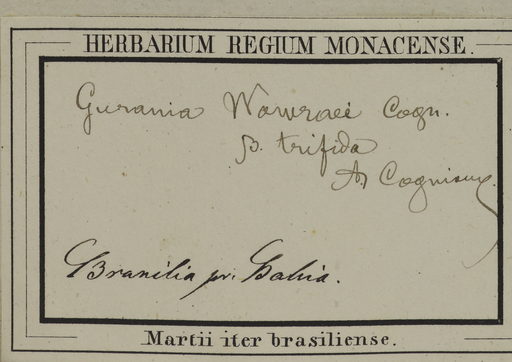 HERBARIUM REGIUM MONACENSE.
Gurania Wawraei Cogn.
β. trifida
A. Cogniaux.
Brasilia pr. Bahia.
Martii iter brasiliense.